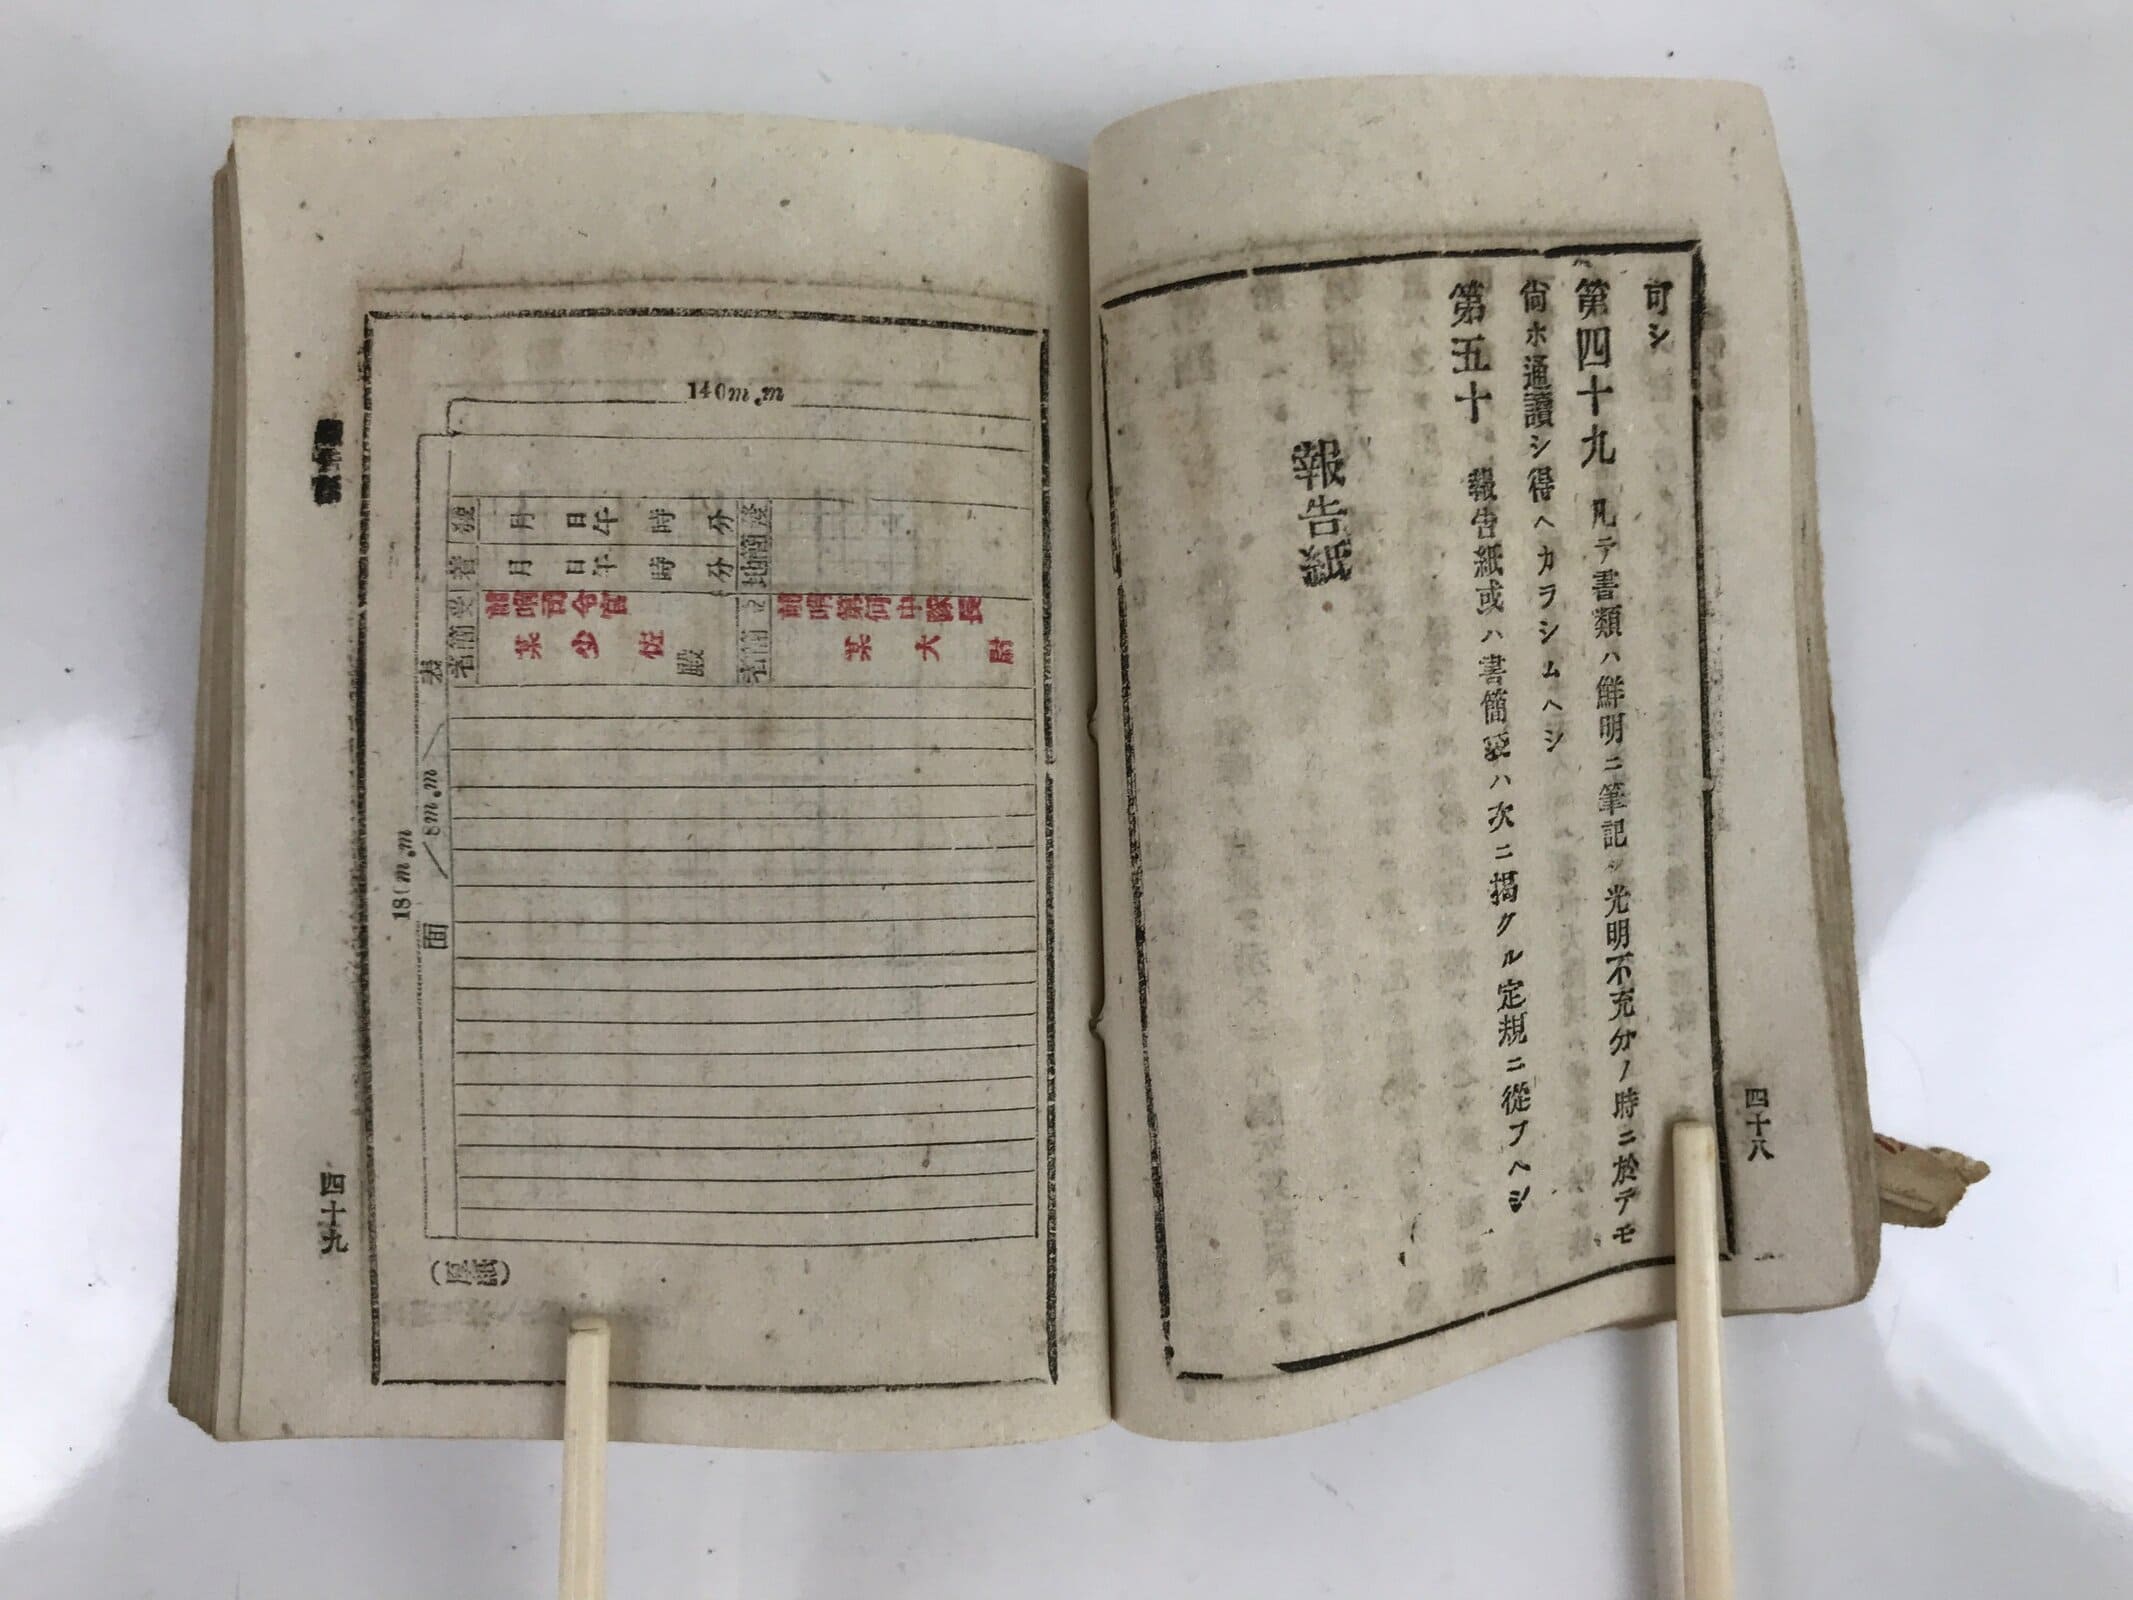 可シ
第四十九 凡テ書類ハ鮮明ニ筆記シ光明不充分ノ時ニ於テモ
尙ホ通讀シ得ヘカラシムヘシ
第五十 報告紙或ハ書簡袋ハ次ニ揭クル定規ニ從フヘシ
報告紙
四十八
140m.m
180m.m
8m.m
表面
發 月 日 午 時 分
着 月 日 午 時 分
發簡地
受簡者
前哨司令官
某少佐
殿
立簡者
前哨第何中隊長
某大尉
(原紙)
四十九